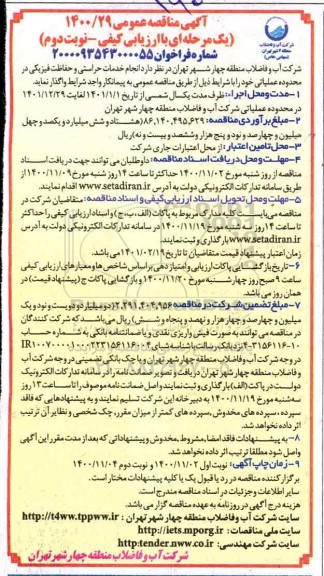 آگهی مناقصه عمومی ۱۴۰۰/۲۹
(یک مرحله ای با ارزیابی کیفی - نوبت دوم)
شماره فراخوان ۲۰۰۰۰۹۳۵۴۳۰۰۰۰۵۵
شرکت آب و فاضلاب
منطقه ۴ شهر تهران
(سهامی خاص)
شرکت آب و فاضلاب منطقه چهار شهر تهران در نظر دارد انجام خدمات حراستی و حفاظت فیزیکی در
محدوده عملیاتی خود را با شرایط ذیل از طریق مناقصه عمومی به پیمانکار واجد شرایط واگذار نماید.
۱- مدت و محل اجرا: ظرف مدت یکسال شمسی از تاریخ ۱۴۰۱/۱/۱ لغایت ۱۴۰۱/۱۲/۲۹
در محدوده عملیاتی شرکت آب و فاضلاب منطقه چهار شهر تهران
۲- مبلغ برآوردی مناقصه: ۸۶,۱۴۰,۴۹۵,۶۲۹ (هشتاد و شش میلیارد و یکصد و چهل
میلیون و چهارصد و نود و پنج هزار و ششصد و بیست و نه) ریال
۳- محل تامین اعتبار: از محل اعتبارات جاری شرکت
۴- مهلت و محل دریافت اسناد مناقصه: داوطلبان می توانند جهت دریافت اسناد
مناقصه از روز شنبه مورخ ۱۴۰۰/۱۱/۰۲ حداکثر تا ساعت ۱۴ روز شنبه مورخ ۱۴۰۰/۱۱/۰۹ از
طریق سامانه تدارکات الکترونیکی دولت به آدرس www.setadiran.ir اقدام نمایند.
۵- مهلت و محل تحویل اسناد ارزیابی کیفی و اسناد مناقصه: متقاضیان شرکت در
مناقصه می بایست کلیه مدارک مربوط به پاکات (الف، ب، ج) و اسناد ارزیابی کیفی را حداکثر
تا ساعت ۱۴ روز سه شنبه مورخ ۱۴۰۰/۱۱/۱۹ در سامانه تدارکات الکترونیکی دولت به آدرس
www.setadiran.ir بارگذاری و ثبت نمایند.
زمان اعتبار پیشنهاد قیمت متقاضیان تا تاریخ ۱۴۰۱/۰۲/۱۹ می باشد.
۶- تاریخ بازگشایی پاکات ارزیابی و امتیازدهی بر اساس شاخص ها و معیارهای ارزیابی کیفی
ساعت ۹ صبح روز چهارشنبه مورخ ۱۴۰۰/۱۱/۲۰ و بازگشایی پاکات ج (پیشنهاد قیمت) در
همان روز می باشد.
۷- مبلغ تضمین شرکت در مناقصه ۲,۲۹۱,۴۰۴,۹۵۶ (دو میلیارد و دویست و نود و یک
میلیون و چهارصد و چهار هزار و نهصد و پنجاه و شش) ریال می باشد که شرکت کنندگان
در مناقصه می توانند به صورت فیش واریز نقدی و یا ضمانتنامه بانکی به شماره حساب
در وجه شرکت آب و فاضلاب منطقه چهار شهر تهران و یا چک بانکی تضمینی در وجه شرکت آب
و فاضلاب منطقه چهار شهر تهران دریافت و تصویر ضمانت نامه را در سامانه تدارکات الکترونیک
دولت در پاکت (الف) بارگذاری و ثبت نمایند و اصل ضمانت نامه موصوف را تا ساعت ۱۳ روز
سه شنبه مورخ ۱۴۰۰/۱۱/۱۹ به دبیرخانه این شرکت تسلیم نمایند و به پیشنهادهایی که فاقد
سپرده، سپرده های مخدوش، سپرده های کمتر از میزان مقرر، چک شخصی و نظایر آن ترتیب
اثر داده نخواهد شد.
۸- به پیشنهادات فاقد امضا، مشروط، مخدوش و پیشنهاداتی که بعد از مدت مقرر این آگهی
واصل شود مطلقا ترتیب اثر داده نخواهد شد.
۹- زمان چاپ آگهی: نوبت اول ۱۴۰۰/۱۱/۰۲ و نوبت دوم ۱۴۰۰/۱۱/۰۴
برگزار کننده مناقصه در رد یا قبول یک یا کلیه پیشنهادات مختار است.
سایر اطلاعات و جزئیات در اسناد مناقصه مندرج است.
هزینه درج آگهی در روزنامه به عهده مناقصه گزار می باشد.
سایت شرکت آب و فاضلاب منطقه چهار شهر تهران: http://t4ww.tppww.ir
سایت ملی مناقصات: http://iets.mporg.ir
سایت شرکت مهندسی: http:tender.nww.co.ir
شرکت آب و فاضلاب منطقه چهار شهر تهران